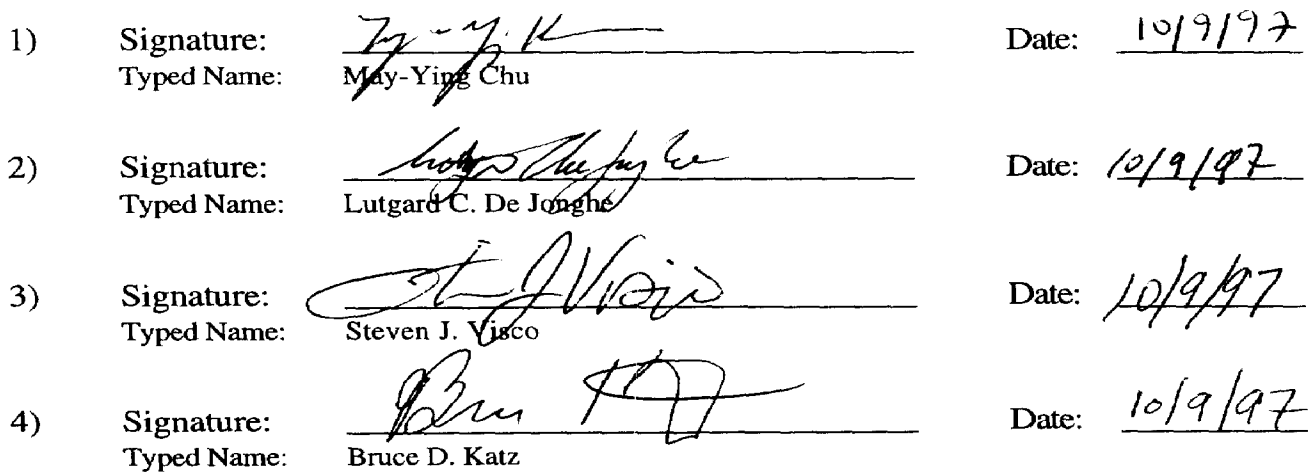 1) Signature: Date: 10/9/97
Typed Name: May-Ying Chu
2) Signature: Date: 10/9/97
Typed Name: Lutgard C. De Jonghe
3) Signature: Steven J Visco Date: 10/9/97
Typed Name: Steven J. Visco
4) Signature: Bruce Date: 10/9/97
Typed Name: Bruce D. Katz